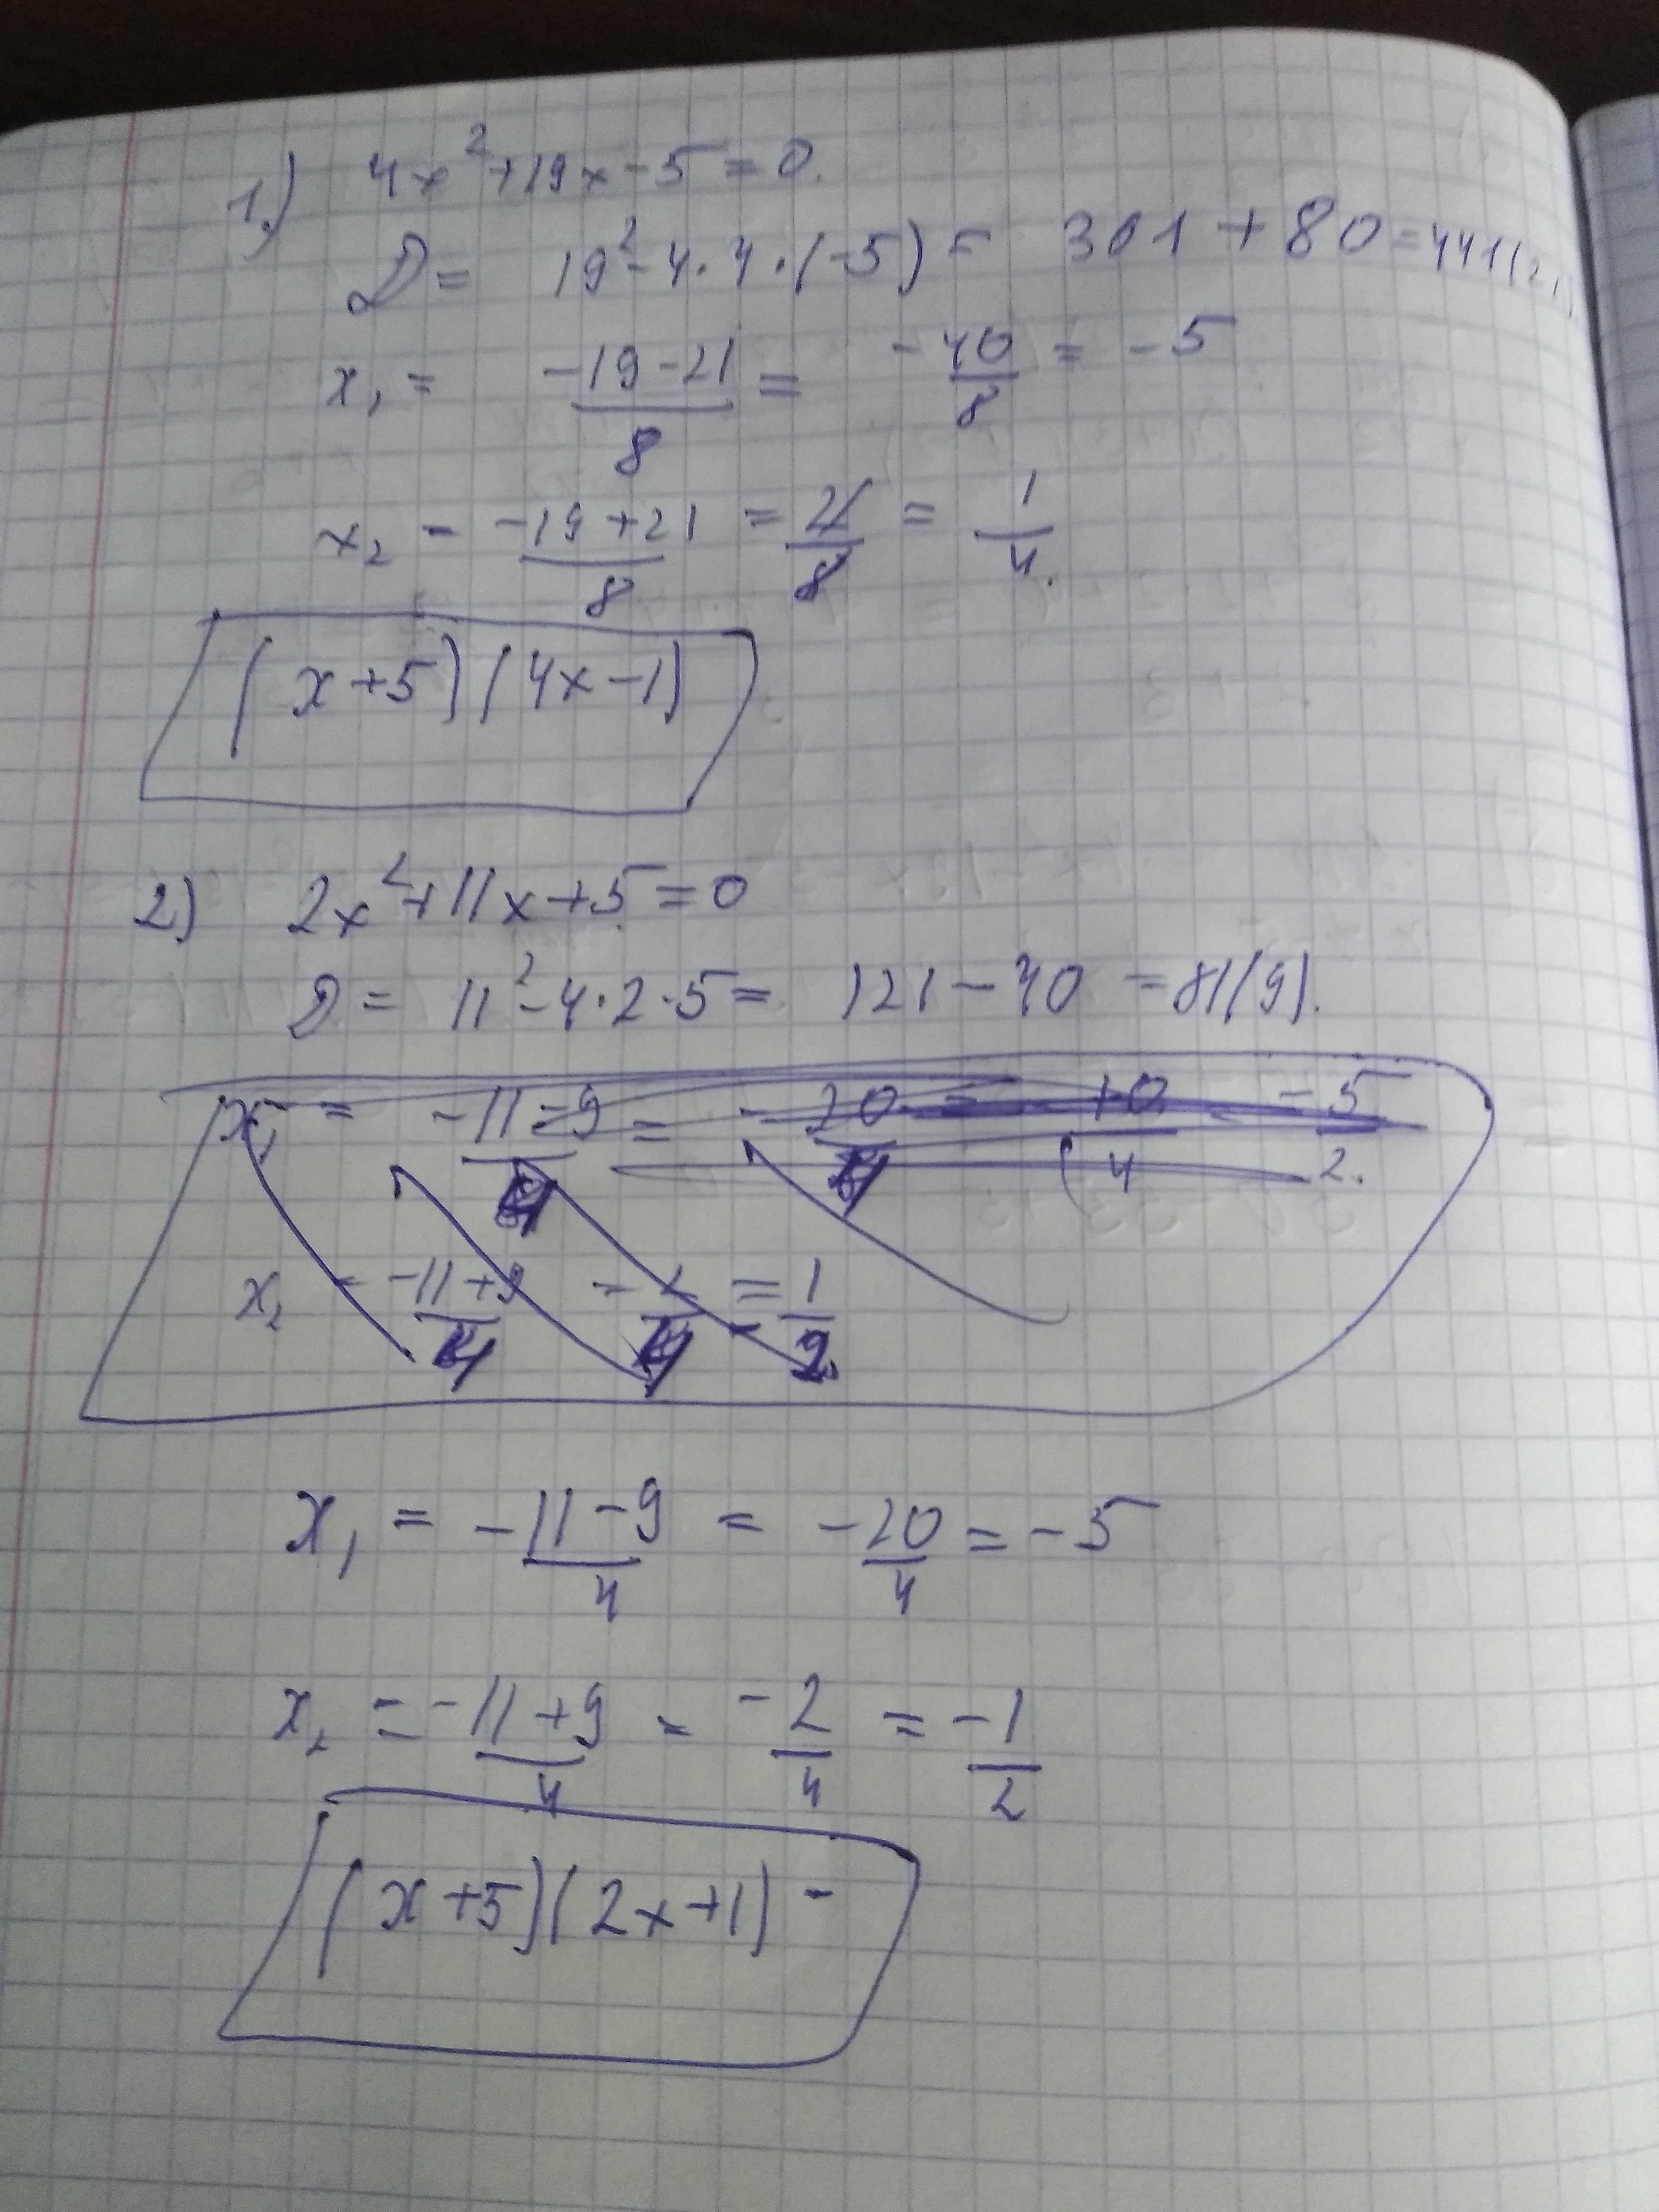 1.) 4x²+19x-5=0.
D= 19²-4·4·(-5)= 301+80=441(21)
x₁ = (-19-21)/8 = -40/8 = -5
x₂ = (-19+21)/8 = 2/8 = 1/4.
(x+5)(4x-1)
2) 2x²+11x+5=0
D= 11²-4·2·5= 121-40=81(9).
x₁ = (-11-9)/4 = -20/4 = 10/4 - 5/2.
x₂ = (-11+9)/4 = 1/2.
x₁ = (-11-9)/4 = -20/4 = -5
x₂ = (-11+9)/4 = -2/4 = -1/2
(x+5)(2x+1)-